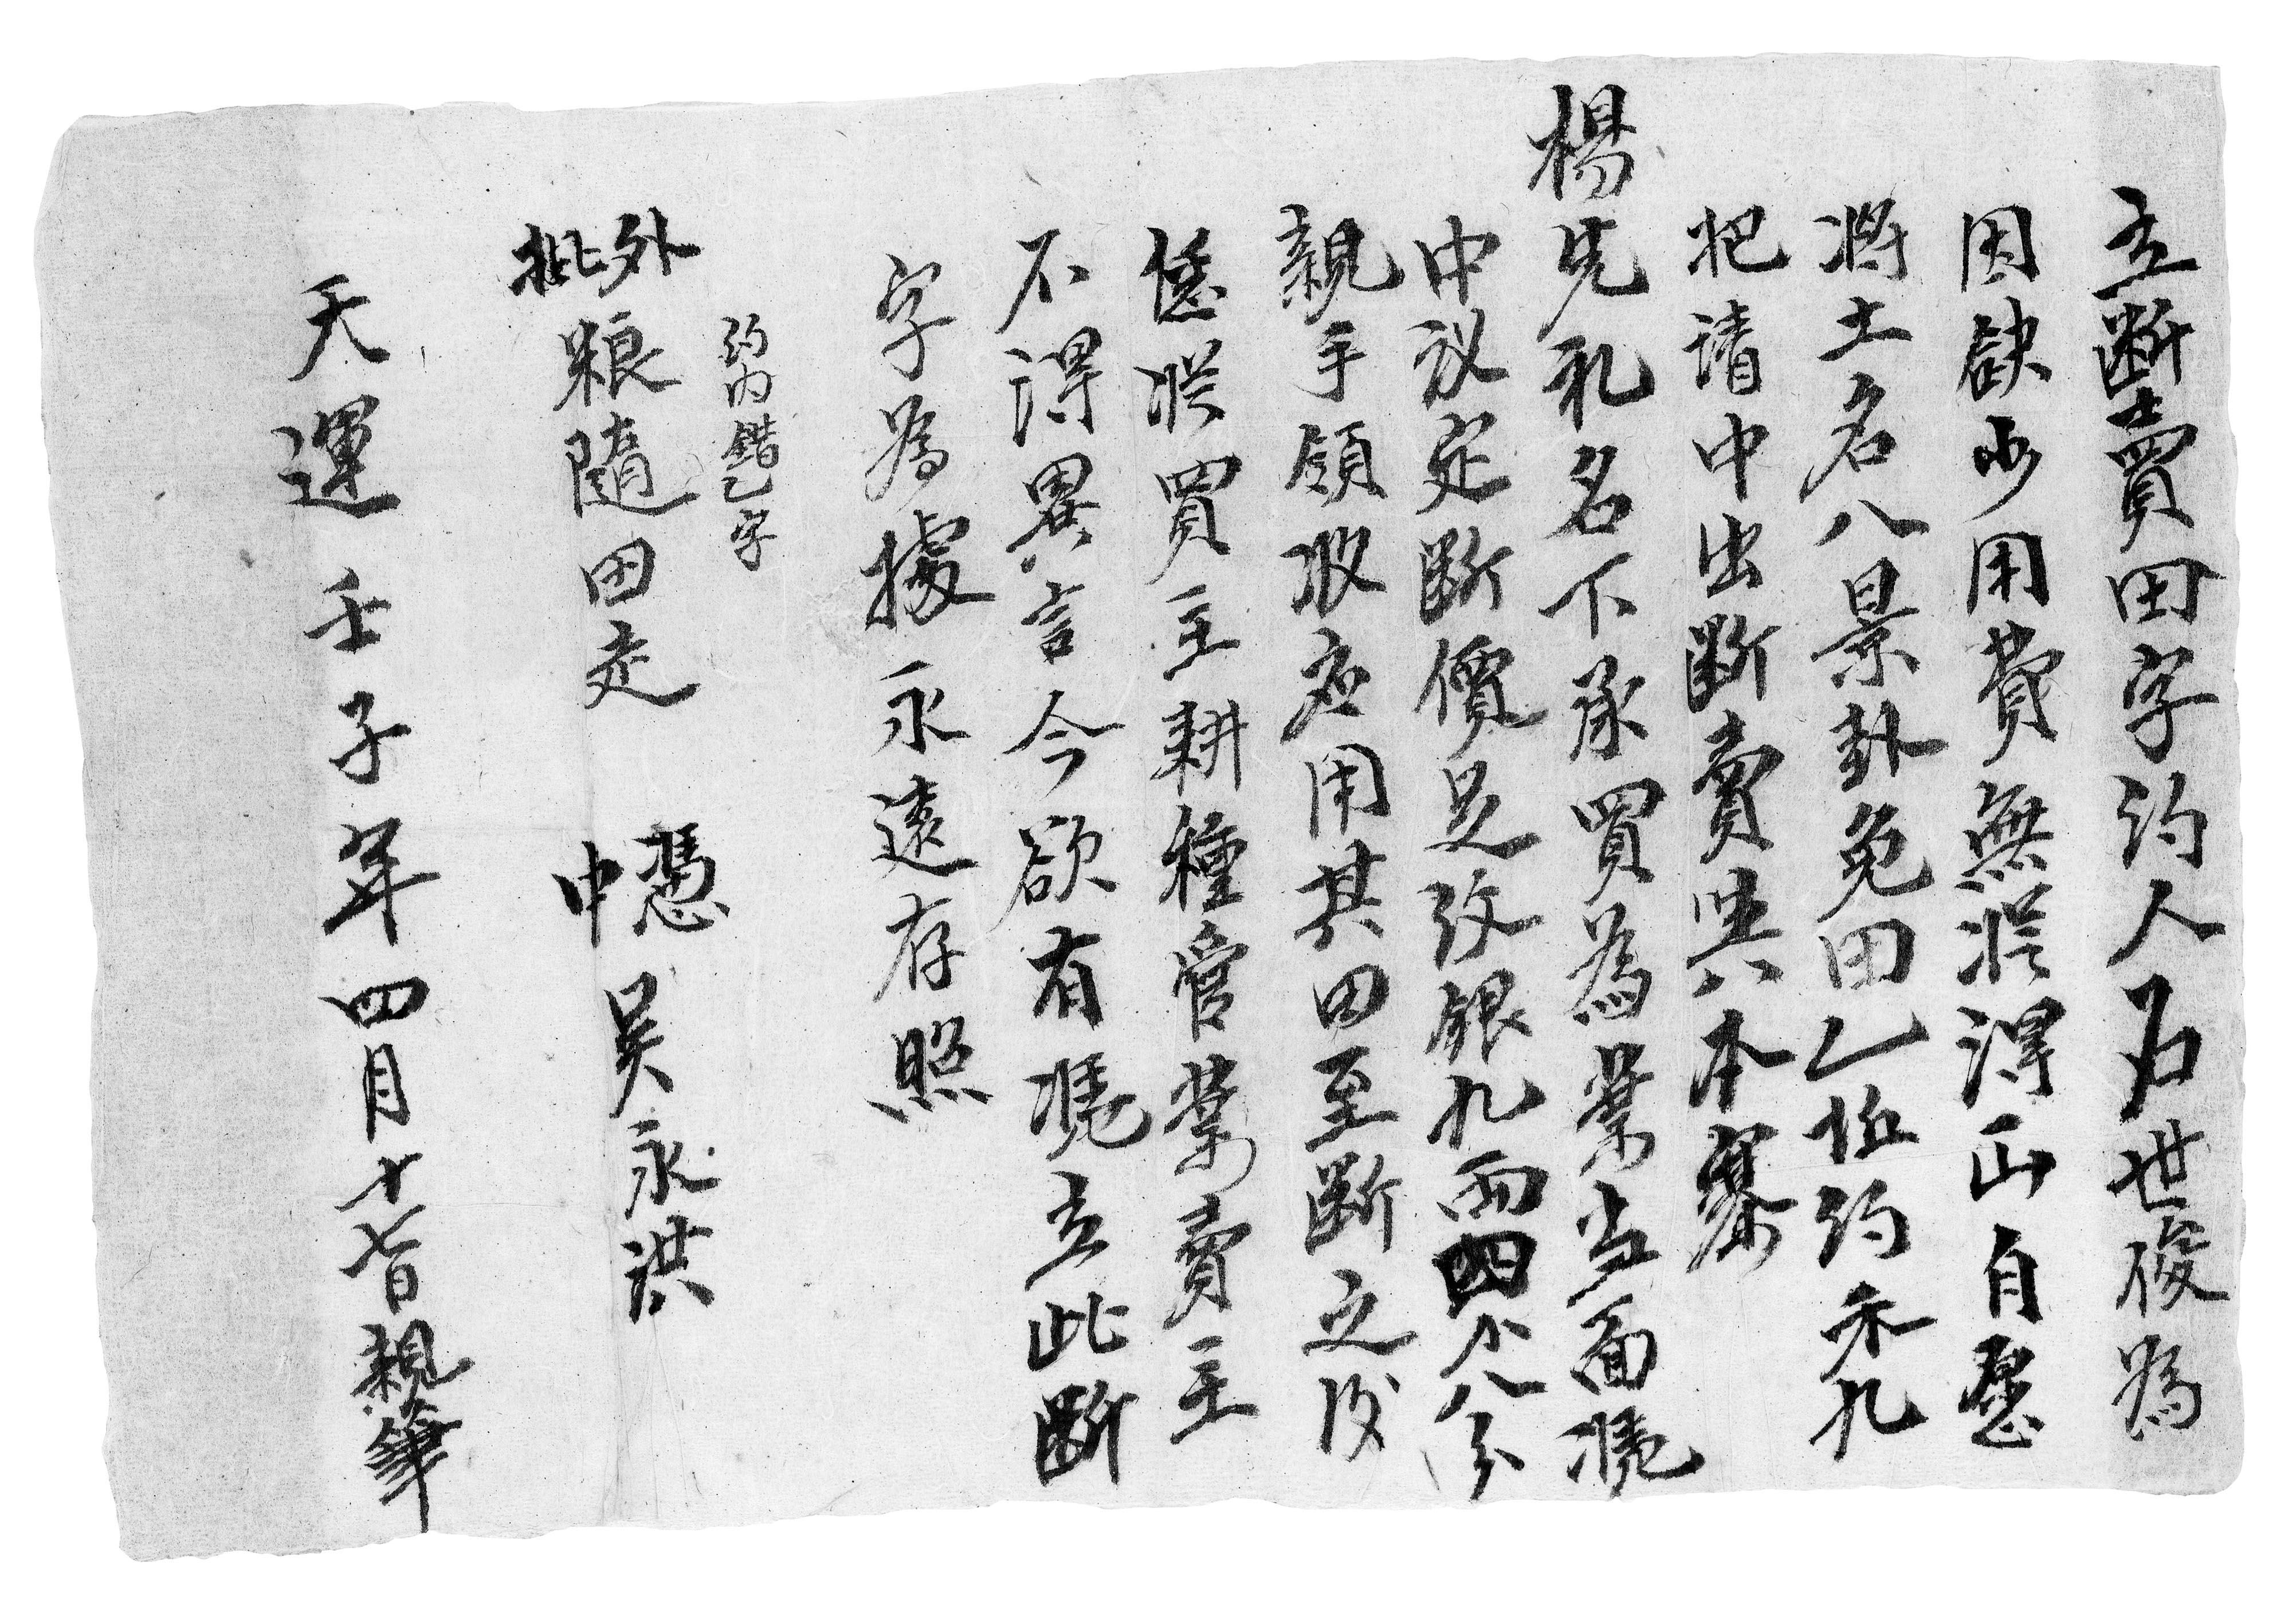 立斷賣田字约人石世俊為
因缺少用費無従得山自愿
将土名八景卦兔田乙坵约禾九
把请中出斷賣與本寨
楊先礼名下承買為業当面凴
中议定斷價足纹銀九两四卜八分
親手領収应用其田至斷之後
恁従買主耕種管業賣主
不得異言今欲有凴立此斷
字為據永遠存照
约内錯乙字
外批粮隨田走 憑中吴永洪
天運壬子年四月十七日親筆